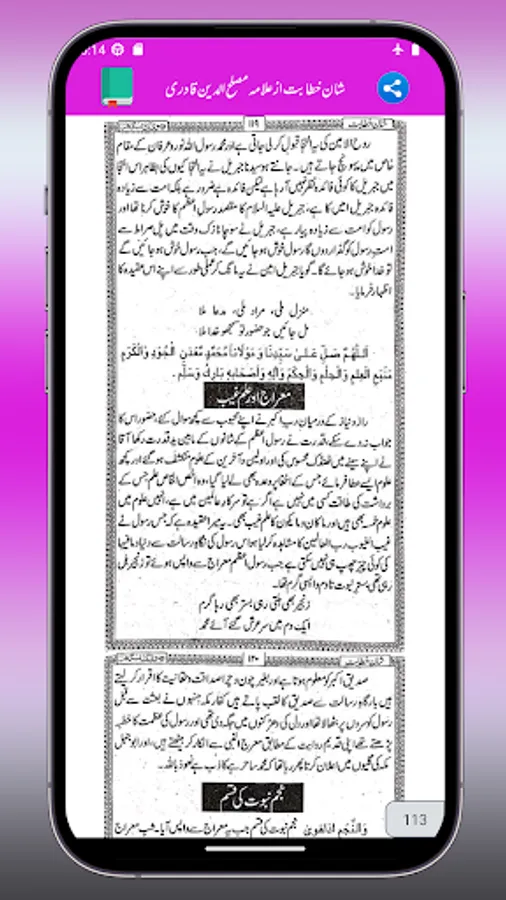 5:14
شان خطابت از علامہ مصلح الدین قادری
۱۱۹
شان خطابت
روح الامین کی یہ التجا قبول کر لی جاتی ہے اور محمد رسول اللہ نور و عرفان کے مقام
خاص میں پہونچ جاتے ہیں۔ جانتے ہو سیدنا جبریل نے یہ التجا کیوں کی بظاہر اس التجا
میں جبریل کا کوئی فائدہ نظر نہیں آ رہا ہے لیکن فائدہ ہے ضرور ہے بلکہ امت سے زیادہ
فائدہ جبریل امیں کا ہے، جبریل علیہ السلام کا مقصد رسول اعظم کا خوش کرنا تھا اور
رسول کو امت سے زیادہ پیار ہے، جبریل نے سوچا نازک وقت میں پل صراط سے
امت رسول کو گذار دوں گا رسول خوش ہو جائیں گے، جب رسول خوش ہو جائیں گے
تو خدا خوش ہو جائے گا۔ گویا جبریل امین نے یہ مانگ کر عملی طور سے اپنے اس عقیدہ کا
اظہار فرمایا۔
منزل ملی، مراد ملی، مدعا ملا
مل جائیں جو حضور تو سمجھو خدا ملا
اَللّٰهُمَّ صَلِّ عَلىٰ سَيِّدِنَا وَ مَوْلَانَا مُحَمَّدٍ مَّعْدَنِ الْجُوْدِ وَالْكَرَمِ
مَنْبَعِ الْعِلْمِ وَالْحِلْمِ وَالْحِكَمِ وَاٰلِهٖ وَاَصْحَابِهٖ بَارِكْ وَسَلِّمْ۔
معراج اور علم غیب
راز و نیاز کے درمیان رب اکبر نے اپنے محبوب سے کچھ سوال کئے، حضور اس کا
جواب نہ دے سکے، قدرت نے رسول اعظم کے شانوں کے مابین ید قدرت رکھا آقا
نے اپنے سینے میں ٹھنڈک محسوس کی اور اولین و آخرین کے علوم منکشف ہو گئے اور کچھ
علوم ایسے عطا فرمائے جس کے اخفا پر وعدہ بھی لے لیا گیا، وہ اخص الخاص علم جس کے
برداشت کی طاقت کسی میں نہیں ہے اگر ہے تو سرکار عالمین میں ہے، انہیں علوم میں
علوم خمسہ بھی ہیں اور ما کان و ما یکون کا علم غیب بھی۔ یہ میرا عقیدہ ہے کہ جس رسول نے
غیب الغیوب رب العالمین کا مشاہدہ کر لیا ہو اس رسول کی نگاہ رسالت سے دنیا و مافیہا
کی کوئی چیز چھپ ہی نہیں سکتی ہے جب رسول اعظم معراج سے واپس ہوئے تو زنجیر ہل
رہی تھی بستر نبوت تا دم واپسی گرم تھا۔
زنجیر بھی ہلتی رہی بستر بھی رہا گرم
ایک دم میں سر عرش گئے آئے محمد
۱۲۰
شان خطابت
صدیق اکبر کو معلوم ہوتا ہے اور بغیر چون و چرا صداقت و حقانیت کا اقرار کر لیتے
ہیں بارگاہ رسالت سے صدیق کا لقب پاتے ہیں کفار مکہ جنہوں نے بعثت سے قبل
رسول کو سروں پر بٹھالا تھا اور دل کی دھڑکنوں میں جگہ دی تھی اور رسول کی عظمت کا خطبہ
پڑھتے تھے اپنی قدیم روایت کے مطابق معراج النبی سے انکار کر بیٹھتے ہیں، اور ابوجہل
مکہ کی گلیوں میں اعلان کرتا پھر رہا تھا کہ محمد ساحر ہے کاذب ہے نعوذ باللہ۔
نجم نبوت کی قسم
وَالنَّجْمِ اِذَا هَوىٰ نجم نبوت کی قسم جب یہ معراج سے واپس آیا۔ شب معراج
113